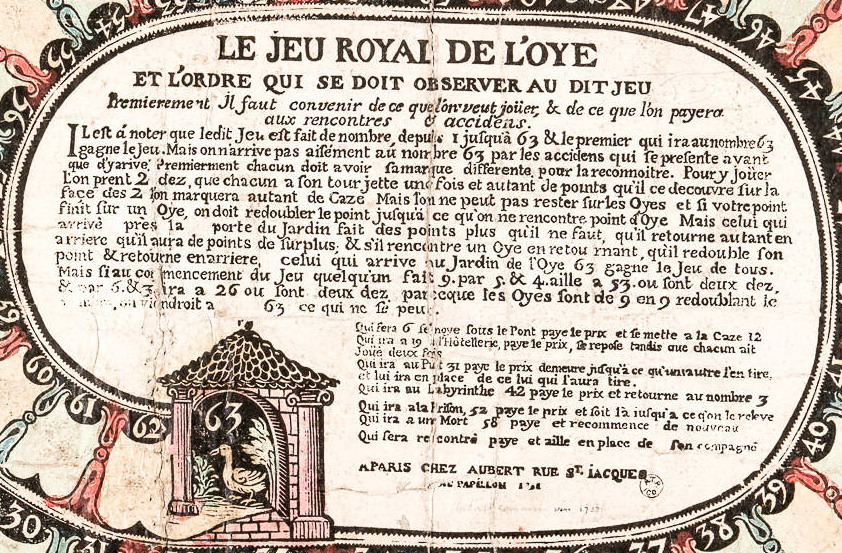 LE JEU ROYAL DE L'OYE
ET L'ORDRE QUI SE DOIT OBSERVER AU DIT JEU
Premierement Il faut convenir de ce que l'on veut joüer, & de ce que l'on payera
aux rencontres & accidens.
IL est á noter que ledit Jeu est fait de nombre, depuis 1 jusqu'à 63 & le premier qui ira au nombre 63
gagne le jeu. Mais on n'arrive pas aisément au nombre 63 par les accidens qui se presente avant
que d'y arive. Premierment chacun doit avoir sa marque differente, pour la reconnoitre. Pour y joüer
L'on prent 2 dez, que chacun a son tour jette une fois et autant de points qu'il ce decouvre sur la
face des 2 l'on marquera autant de Caze. Mais l'on ne peut pas rester sur les Oyes et si votre point
finit sur un Oye, on doit redoubler le point jusqu'à ce qu'on ne rencontre point d'Oye Mais celui qui
arrivé pres la porte du Jardin fait des points plus qu'il ne faut, qu'il retourne autant en
arriere qu'il aura de points de surplus, & s'il rencontre un Oye en retournant, qu'il redouble son
point & retourne en arriere, celui qui arrive au Jardin de l'Oye 63 gagne le Jeu de tous.
Mais si au commencement du Jeu quelqu'un fait 9. par 5. & 4. aille a 53. ou sont deux dez,
& par 6. & 3, ira a 26 ou sont deux dez parceque les Oyes sont de 9 en 9 redoublant le
on viendroit a 63 ce qui ne se peut.
Qui fera 6 se noye sous le Pont paye le prix et se mette a la Caze 12
Qui ira a 19 a l'Hôtellerie, paye le prix, se repose tandis que chacun ait
Joué deux fois
Qui ira au Puit 31 paye le prix demeure jusqu'à ce qu'un autre l'en tire,
et lui ira en place de ce lui qui l'aura tire.
Qui ira au Labyrinthe 42 paye le prix et retourne au nombre 3
Qui ira a la Prison, 52 paye le prix et soit là jusqu'a ce qu'on le releve
Qui ira a une Mort 58 paye et recommence de nouveau
Qui sera recontré paye et aille en place de son compagnō
A PARIS CHEZ AUBERT RUE S.T JACQUES
AU PAPILLON
63
62
61
60
59
30
31
37
38
39
40
45
46
47
54
53